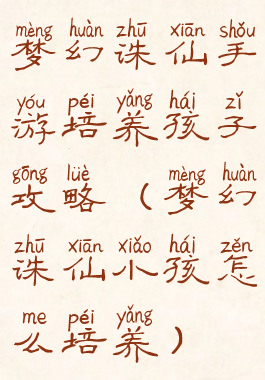 mèng huàn zhū xiān shǒu
梦幻诛仙手
yóu péi yǎng hái zǐ
游培养孩子
gōng lüè mèng huàn
攻略（梦幻
zhū xiān xiǎo hái zěn
诛仙小孩怎
me péi yǎng
么培养）